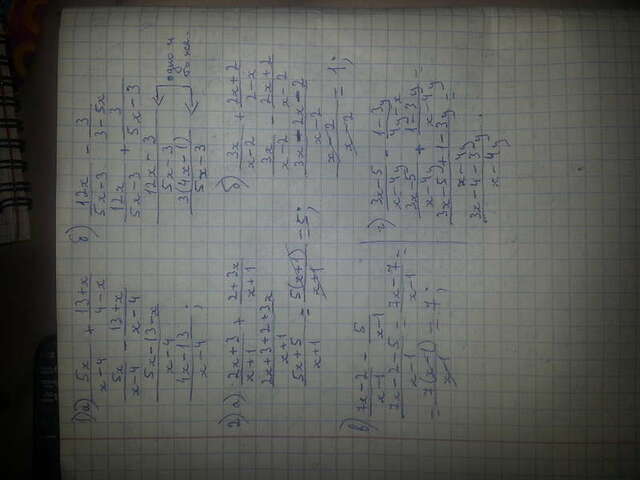 1) а) 5x/x-4 + 13+x/4-x
5x/x-4 - 13+x/x-4
5x-13-x/x-4
4x-13/x-4 ;
б) 12x/5x-3 - 3/3-5x
12x/5x-3 + 3/5x-3
12x-3/5x-3
3(4x-1)/5x-3
одно и
то же.
2) а) 2x+3/x+1 + 2+3x/x+1
2x+3+2+3x/x+1
5x+5/x+1 = 5(x+1)/x+1 = 5;
б) 3x/x-2 + 2x+2/2-x
3x/x-2 - 2x+2/x-2
3x-2x-2/x-2
x-2/x-2 = 1;
в) 7x-2/x-1 - 5/x-1
7x-2-5/x-1 = 7x-7/x-1 =
= 7(x-1)/x-1 = 7;
г) 3x-5/x-4y - 1-3y/4y-x
3x-5/x-4y + 1-3y/x-4y =
3x-5+1-3y/x-4y =
3x-4-3y/x-4y .